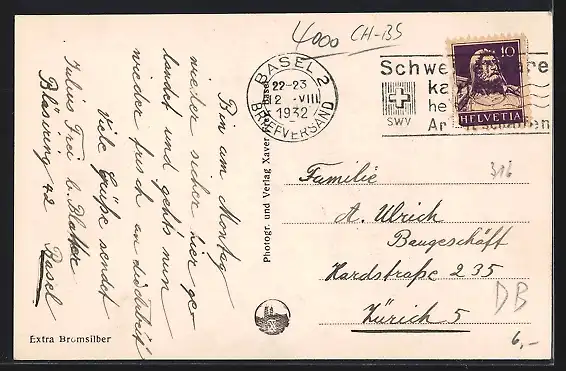 4000 CH-BS
BASEL 2
22-23
2 VIII
1932
BRIEFVERSAND
Schwe
SWV
10
HELVETIA
316
Bin am Montag
wieder sicher hier ge-
landet und gehts nun
wieder frisch an die Arbeit
Viele Grüße sendet
Julius Frei b. Blatter
Bläsiring 42 Basel
Photogr. und Verlag Xaver
Familie
A. Ulrich
Baugeschäft
Hardstraße 235
Zürich 5
DB
6,-
Extra Bromsilber